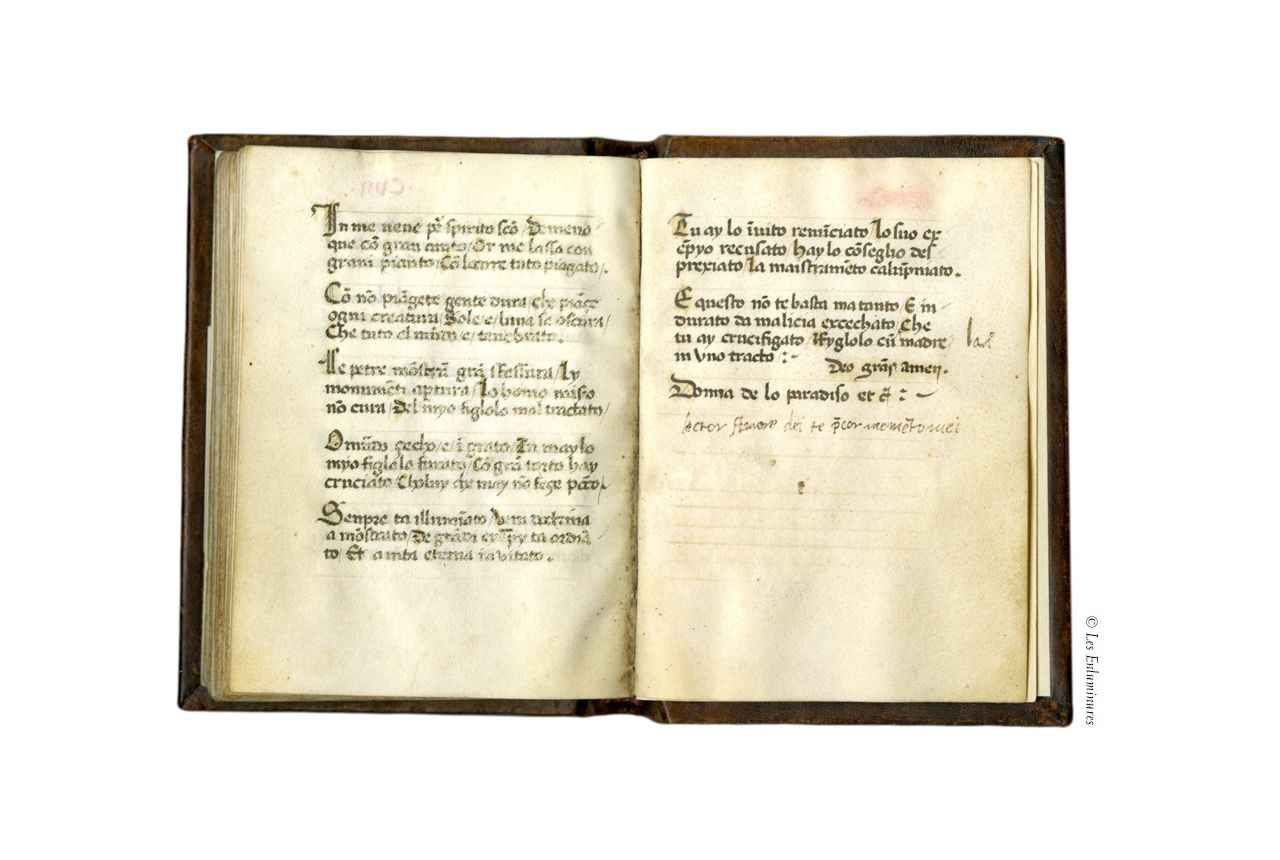 In me vene pr̄ spirito scō / De meno
que cō gran canto / Or me lassa con
grani pianto / Cō lo core tuto piagato /.
Cō nō piāgete gente dura / che piāge
ogni creatura / Sole / e / luna se oscura /
Che tuto el mūn / e / tenebrato .
Le petre mōstrā grā fessura / Ly
monumēti aptura / Lo homo misso
nō cura / Del myo figlolo mal tractato /
O mūdo çecho / e / ī grato / Tu may lo
myo figlolo furato / Cō grā torto hay
cruciato / che may nō feçe pcc̄o /.
Senpre ta illumīato /
a mōstrato / De grādi ta ordīa
to / Et a vita eterna īa vitato .
Tu ay lo īuito remūciato / Lo suo ex
ēpyo recusato / hay lo cōseglio des
prexiato / La maistramēto calūpniato .
E questo nō te basta ma tanto / E in
durato da malicia excechato / Che
tu ay crucifigato / figlolo cū madre /
in vno tracto :~
Deo grās amen .
Donna de lo paradiso et c̄ : ~
lector amore dei te p̄cor memēto mei
© Les Enluminures